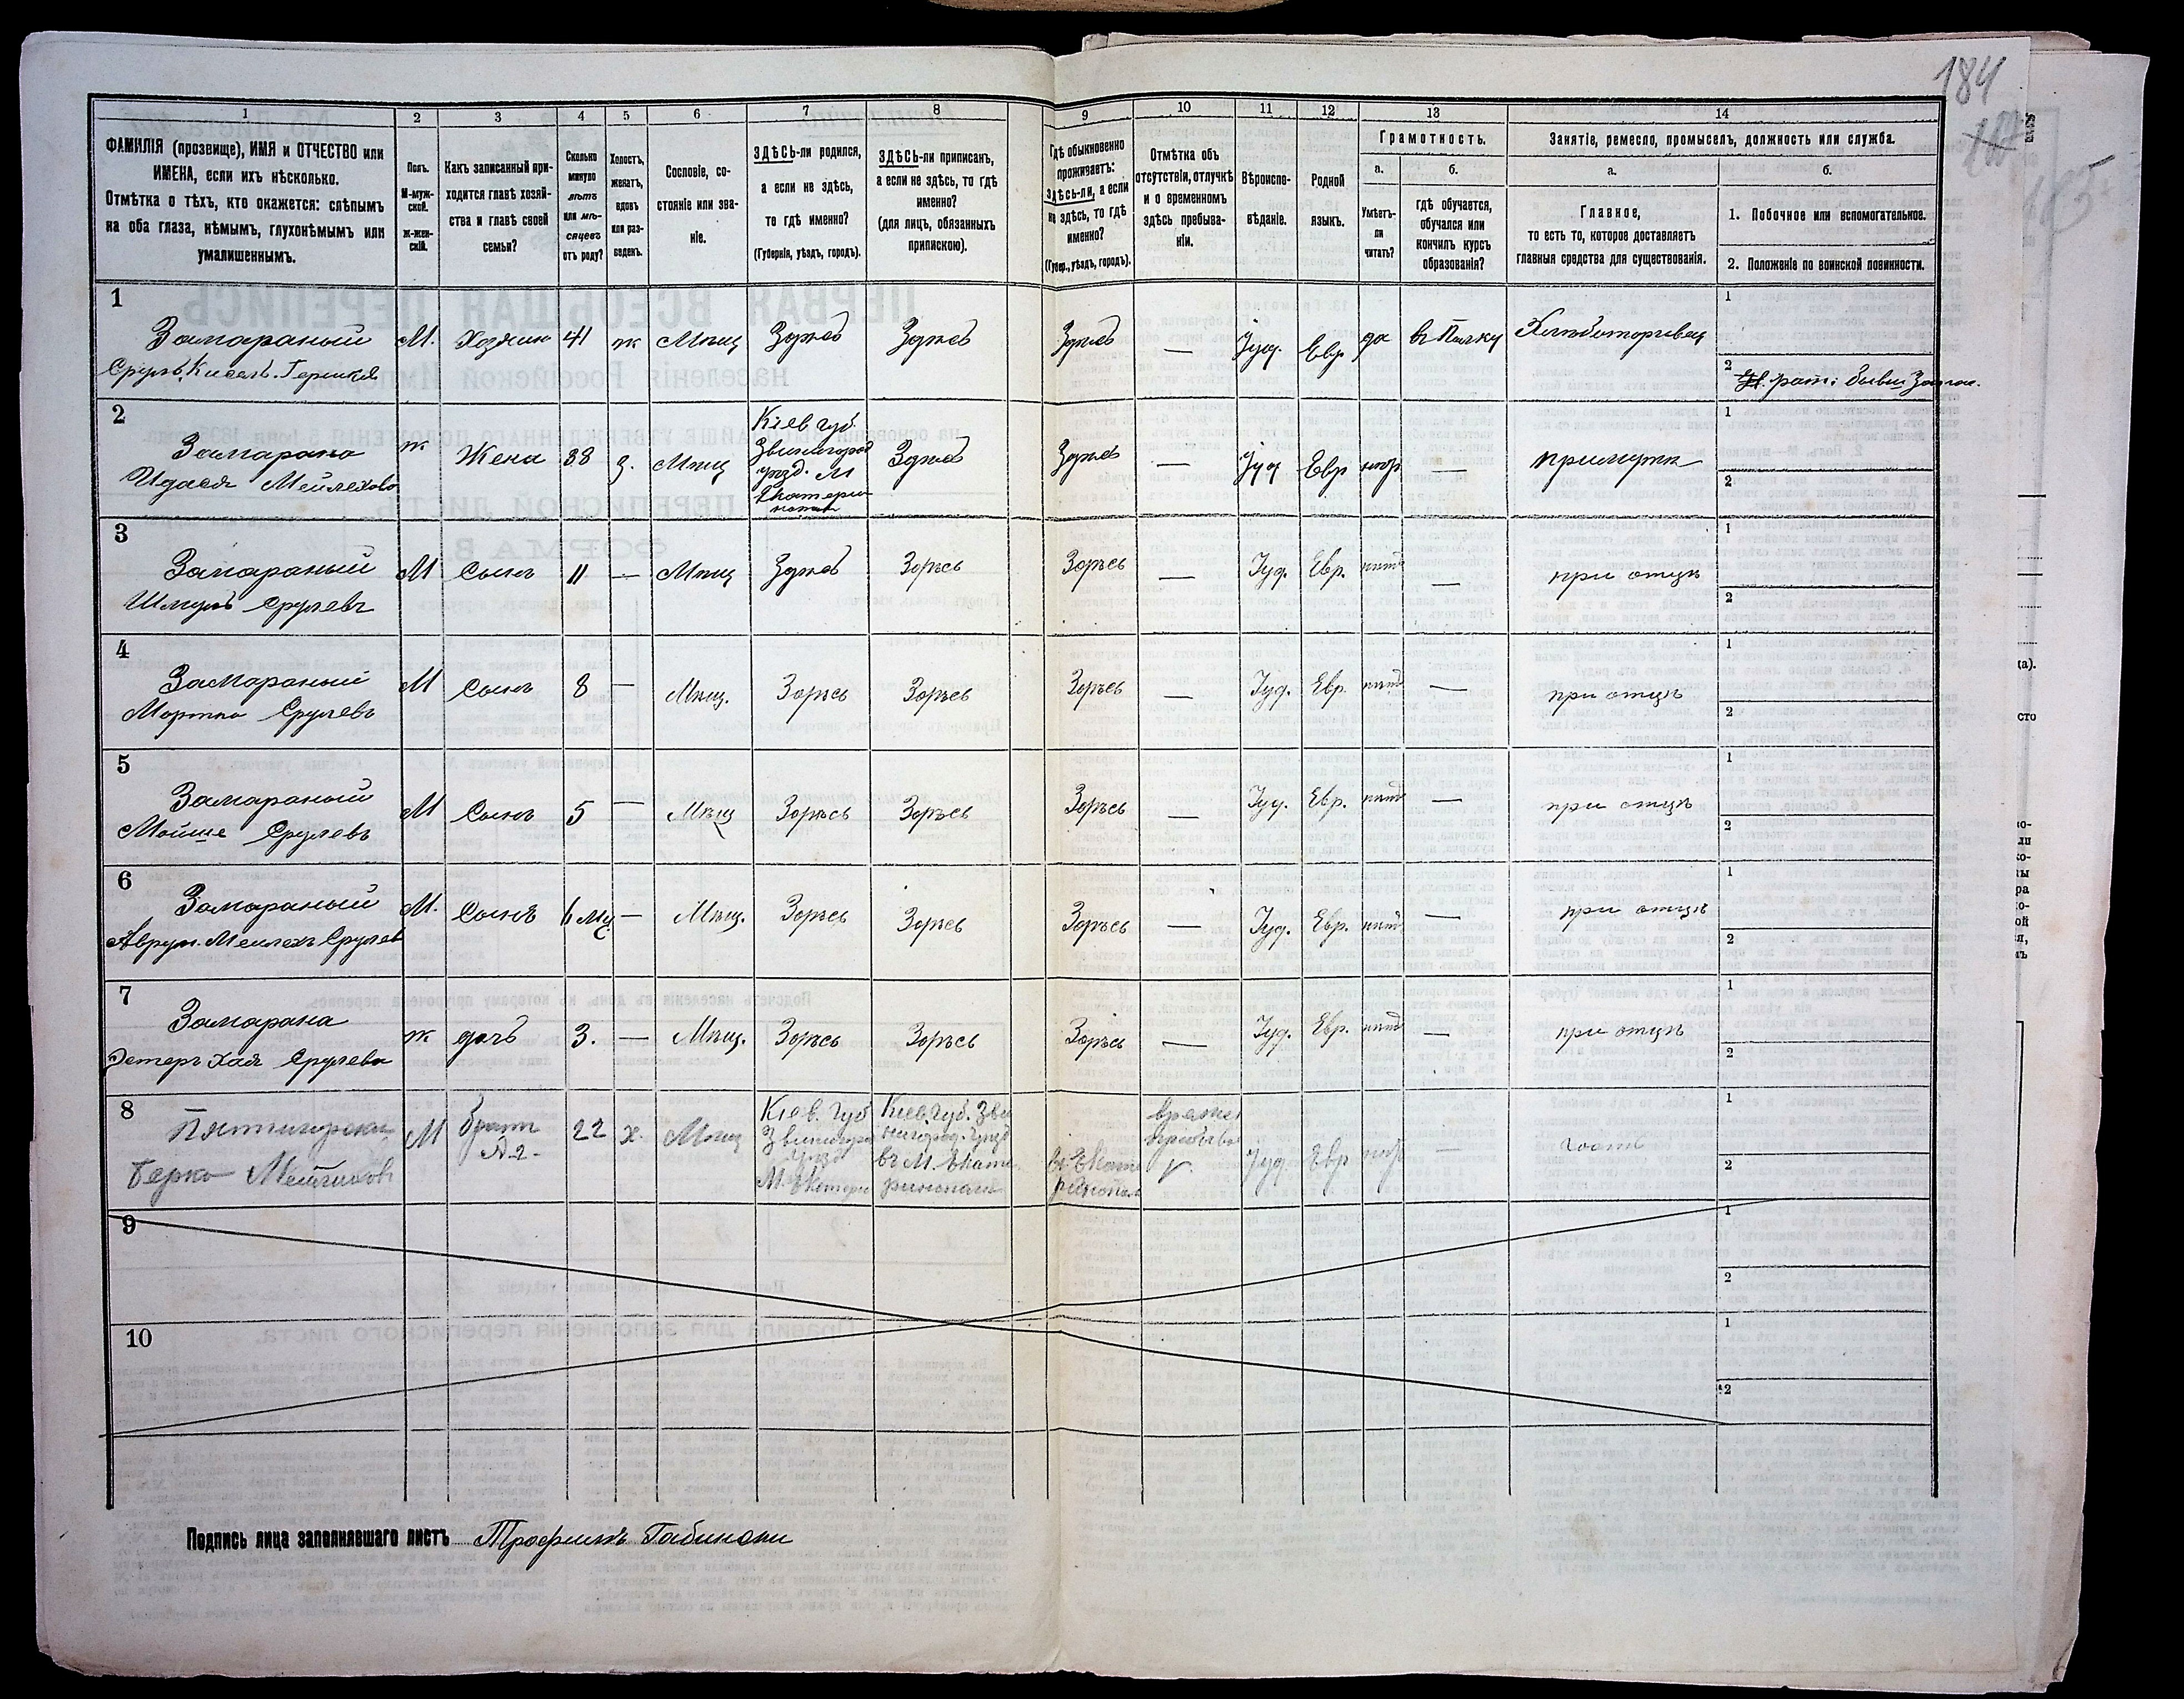 184
1
2
3
4
5
6
7
8
9
10
11
12
13
14
ФАМИЛІЯ (прозвище), ИМЯ и ОТЧЕСТВО или
ИМЕНА, если ихъ нѣсколько.
Отмѣтка о тѣхъ, кто окажется: слѣпымъ
на оба глаза, нѣмымъ, глухонѣмымъ или
умалишеннымъ.
Полъ.
М-муж-
ской.
Ж-жен-
скій.
Какъ записанный при-
ходится главѣ хозяй-
ства и главѣ своей
семьи?
Сколько
минуло
лѣтъ
или мѣ-
сяцевъ
отъ роду?
Холостъ,
женатъ,
вдовъ
или раз-
веденъ.
Сословіе, со-
стояніе или зва-
ніе.
ЗДѢСЬ-ли родился,
а если не здѣсь,
то гдѣ именно?
(Губернія, уѣздъ, городъ).
ЗДѢСЬ-ли приписанъ,
а если не здѣсь, то гдѣ
именно?
(для лицъ, обязанныхъ
припискою).
Гдѣ обыкновенно
проживаетъ:
здѣсь-ли, а если
не здѣсь, то гдѣ
именно?
(Губер., уѣздъ, городъ).
Отмѣтка объ
отсутствіи, отлучкѣ
и о временномъ
здѣсь пребыва-
ніи.
Вѣроиспо-
вѣданіе.
Родной
языкъ.
Грамотность.
а.
Умѣетъ-
ли
читать?
б.
гдѣ обучается,
обучался или
кончилъ курсъ
образованія?
Занятіе, ремесло, промыселъ, должность или служба.
а.
Главное,
то есть то, которое доставляетъ
главныя средства для существованія.
б.
1. Побочное или вспомогательное.
2. Положеніе по воинской повинности.
1
Замараный
Сруль Кисель Гершков
М. Хозяин 41 ж Мѣщ Здѣсь Здѣсь Здѣсь — Іуд. Евр да въ Полку Хлѣботорговец
1
2
2
Замарана
Идася Мейлехова
ж Жена 38 з. Мѣщ
Кіев Губ.
Звинигород
уѣзд. М
Екатери
нополь
Здѣсь Здѣсь — Іуд Евр нѣт — при мужѣ
1
2
3
Замараный
Шмуль Срулевъ
М Сынъ 11 — Мѣщ Здѣсь Здѣсь Здѣсь — Іуд. Евр. нѣтъ — при отцѣ
1
2
4
Замараный
Мортко Срулевъ
М Сынъ 8 — Мѣщ. Здѣсь Здѣсь Здѣсь — Іуд. Евр. нѣтъ — при отцѣ
1
2
5
Замараный
Мойше Срулевъ
М Сынъ 5 — Мѣщ Здѣсь Здѣсь Здѣсь — Іуд. Евр. нѣтъ — при отцѣ
1
2
6
Замараный
Аврум. Мейлехъ Срулев
М. Сынъ 6 мц — Мѣщ. Здѣсь Здѣсь Здѣсь — Іуд. Евр. нѣтъ — при отцѣ
1
2
7
Замарана
Эстеръ Хая Срулева
ж дочь 3. — Мѣщ. Здѣсь Здѣсь Здѣсь — Іуд. Евр. нѣтъ — при отцѣ
1
2
8
Пятигорски
Берко Мейлихов
М братъ 22 х. Мѣщ
Кіев. Губ
Звинигоро
уѣзд
М. Екатери
Кіев. Губ. Зви
нигород. уѣзд
въ М. Екате
ринополь
въ Екате
ринополь
време
пребыва
Іуд. Евр нѣт — гость
1
2
9
1
2
10
1
2
Подпись лица заполнявшаго листъ Трофимъ Габински